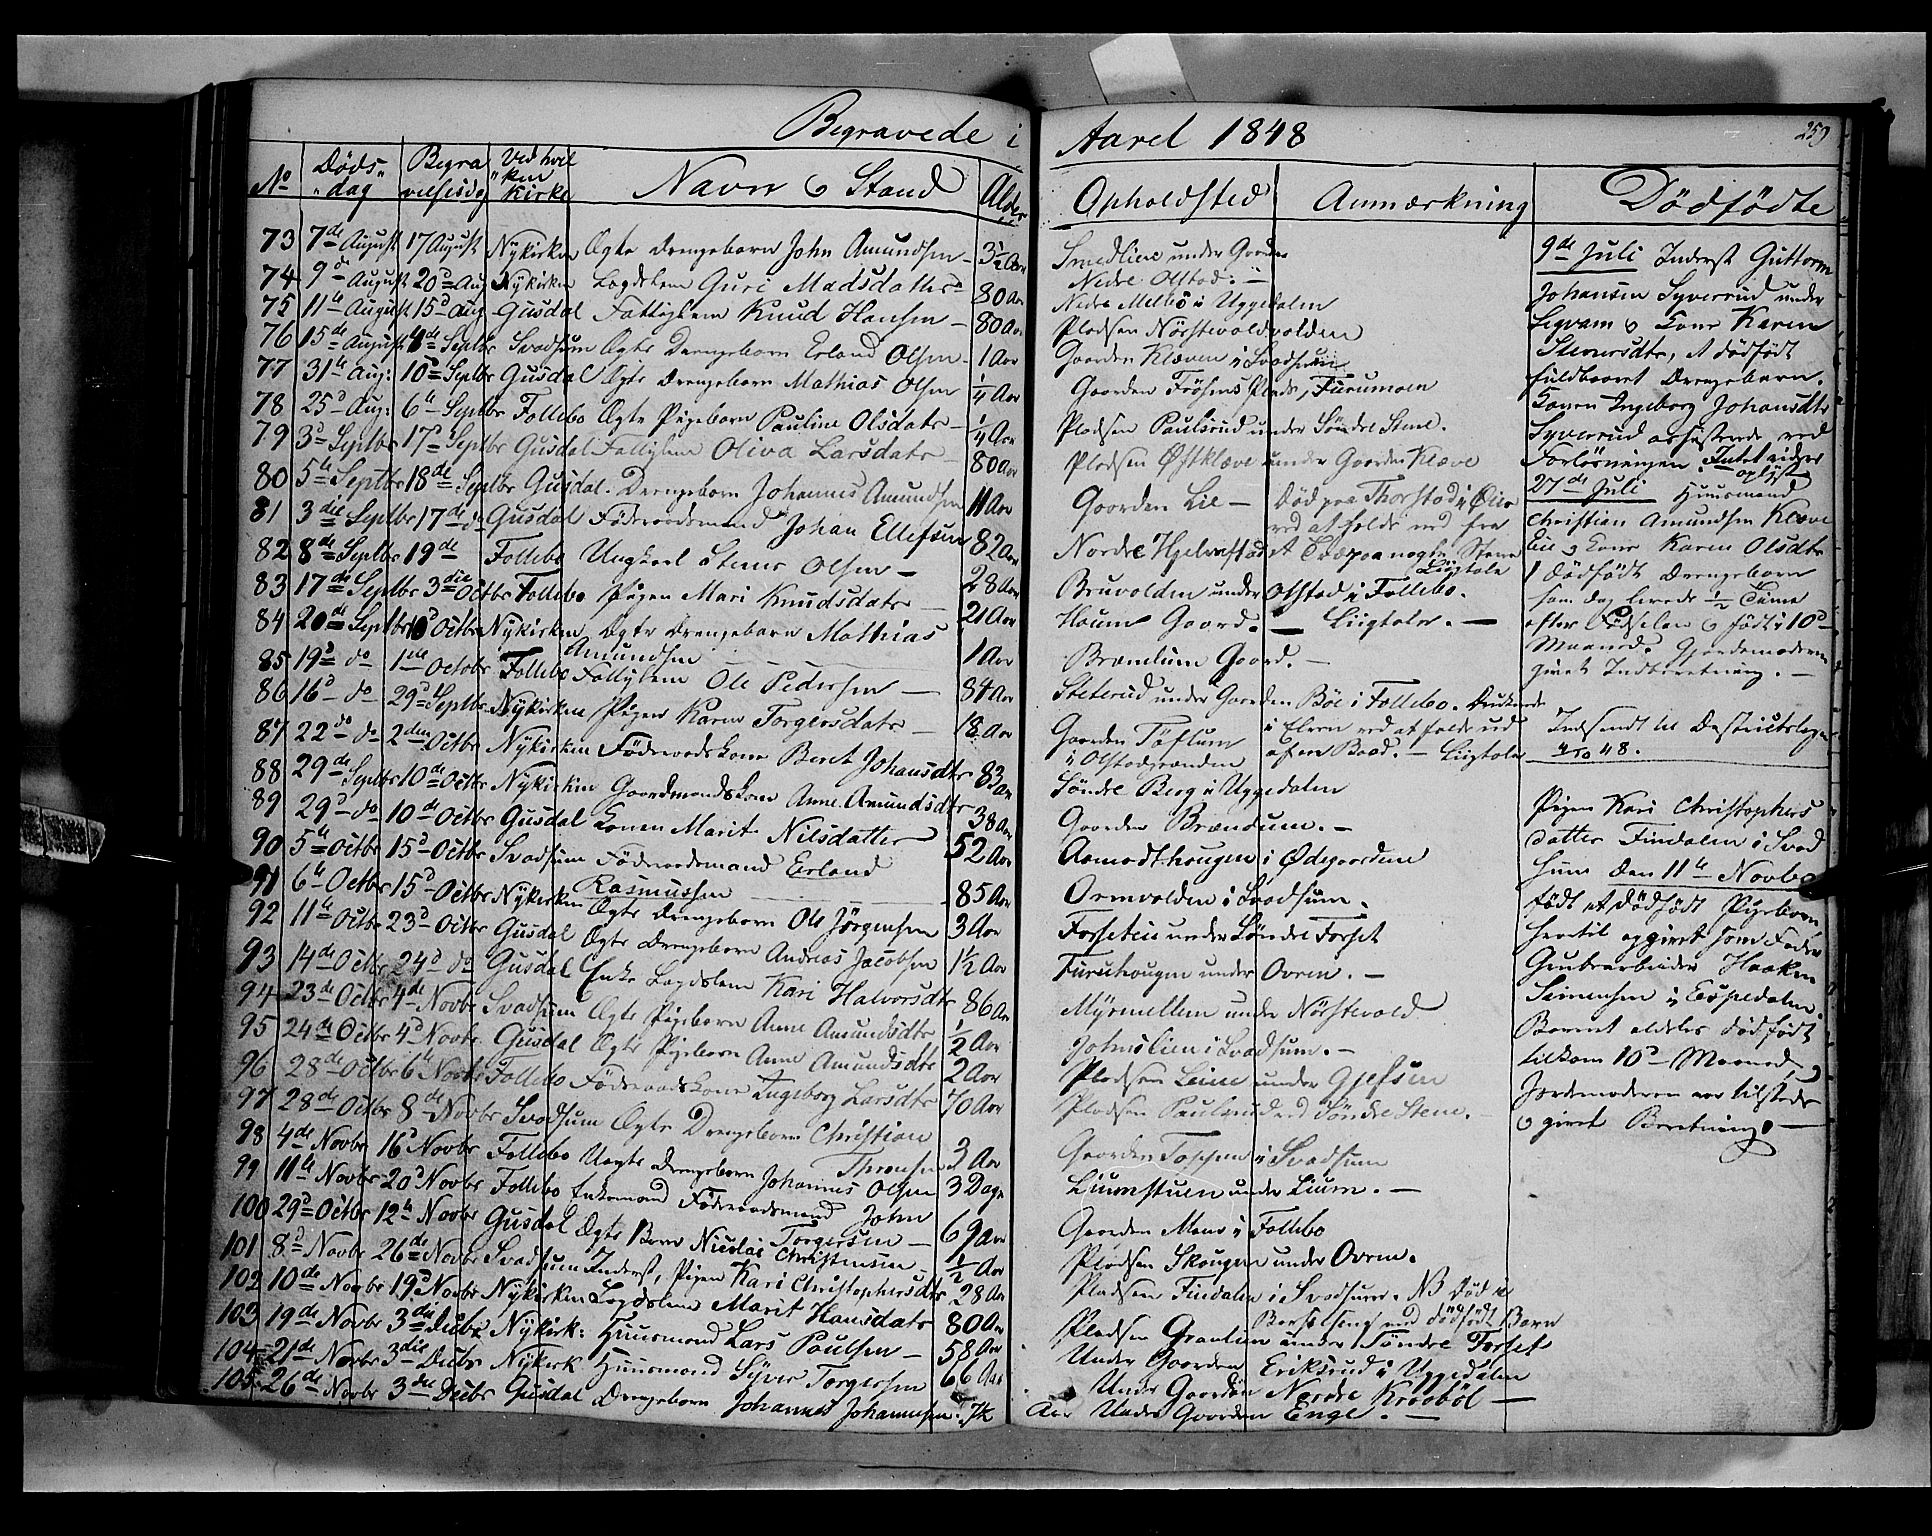 Begravede i Aaret 1848
250
No Døds- dag Begra velsesdag Ved hvil ken Kirke Navn & Stand Alder Opholdsted Anmærkning Dödfödte
73 7de August 17 August Nykirken Ægte Drengebarn John Amundsen 3½ Aar Smedlien under Gaarden
74 9d August 20d Aug Nykirken Lægdslem Guri Madsdatter 80 Aar Nedre Olstad
75 11te August 15d Aug Gusdal Fattiglem Knud Hansen 80 Aar Nedre Melbö i Uggedalen
76 15de August 4de Septbr Svadsum Ægte Drengebarn Erland Olsen 1 Aar Pladsen Nörstevoldvolden
77 31te Aug: 10d Septbr Gusdal Ægte Drengebarn Mathias Olsen ¼ Aar Gaarden Klæven i Svadsum
78 25d Aug: 6te Septbr Follebo Ægte Pigebarn Pauline Olsdatr ¼ Aar Gaarden Frösens Plads, Furumoen
79 3d Septbr 17d Septbr Gusdal Fattiglem Oliva Larsdatr 80 Aar Pladsen Paulsrud under Söndre Stene.
80 5te Septbr 18de Septbr Gusdal. Drengebarn Johannes Amundsen 11 Aar Pladsen Østklæve under Gaarden Klæve
81 3die Septbr 17de do Gusdal Föderaadsmand Johan Ellefsen 82 Aar Gaarden Lie – Död paa Thorstad i Öier
ved at falde ned fra
82 8de Septbr 19de Follebo Ungkarl Stener Olsen 28 Aar Nordre Hjelmstad et Træ paa nogle Stene
Liigtale
83 17de Septbr 3die Octbr Follebo Pigen Mari Knudsdatr 21 Aar Bruvolden under Olstad i Follebo.
84 20de Septbr 10d Octbr Nykirken Ægte Drengebarn Mathias
Amundsen 1 Aar Haum Gaard. – Liigtale. –
85 19d do 1ste October Follebo Fattiglem Ole Pedersen 84 Aar Brændum Gaard. –
86 16d do 29d Septbr Nykirken Pigen Karen Torgersdatr 18 Aar Steterud under Gaarden Böe i Follebo. Druknede
i Elven ved at falde ud
87 22de do 2den Octbr Nykirken Föderaadskone Berit Johansdtr 83 Aar Gaarden Töflum af en Baad. – Liigtale
i Olstadgrænden
88 29de Septbr 10de Octbr Nykirken Gaardmandskone Anne Amundsdtr 38 Aar Söndre Berg i Uggedalen
89 29d do 10de Octbr Gusdal Konen Marit Nilsdatter 52 Aar Gaarden Brændum. –
90 5te Octbr 15d Octbr Svadsum Föderaadsmand Erland
Rasmussen 85 Aar Aamodthougen i Ødegaarden
91 6te Octbr 15d Octbr Nykirken Ægte Drengebarn Ole Jörgensen 3 Aar Ormvolden i Svadsum.
92 11te Octbr 23d Octbr Gusdal Ægte Drengebarn Andreas Jacobsen 1½ Aar Forseteie under Söndre Forset
93 14de Octbr 24d do Gusdal Enke Lægdslem Kari Halvorsdtr 86 Aar Furuhougen under Ovren. –
94 23de Octbr 4de Novbr Svadsum Ægte Pigebarn Anne Amundsdtr ½ Aar Myrmellem under Nörstevold
95 24de Octbr 4d Novbr Gusdal Ægte Pigebarn Anne Amundsdtr 2 Aar Johnslien i Svadsum. –
96 28de Octbr 6te Novbr Follebo Föderaadskone Ingeborg Larsdtr 70 Aar Pladsen Leine under Gjefsen
97 28de Octbr 8de Novbr Svadsum Ægte Drengebarn Christian
Thronsen 3 Aar Pladsen Paulsrud ved Söndre Stene. –
98 4de Novbr 16d Novbr Follebo Uægte Drengebarn Johannes Olsen 3 Dage Gaarden Toppen i Svadsum
99 11te Novbr 20d Novbr Follebo Enkemand Föderaadsmand John
Torgersen 69 Aar Liumstuen under Lium. –
100 29d Octbr 12te Novbr Gusdal Ægte Barn Nicolai Christensen ½ Aar Gaarden Mæhe i Follebo
101 8d Novbr 26de Novbr Svadsum Inderst, Pigen Kari Christophersdtr 28 Aar Pladsen Skougen under Ovren.
102 10de Novbr 19d Novbr Nykirken Lægdslem Marit Hansdatr 80 Aar Pladsen Findalen i Svadsum. NB Död i
Barselseng med dödfödt Barn
103 19de Novbr 3die Decbr Nykirk: Huusmand Lars Paulsen 58 Aar Pladsen Granlien under Söndre Forset
104 21de Novbr 3die Decbr Nykirk Huusmand Syver Torgersen 66 Aar Under Gaarden Eriksrud i Uggedalen
105 26de Novbr 3die Decbr Gusdal Drengebarn Johannes Johannesen. 7¼ Aar Under Gaarden Nordre Kraaböl –
Under Gaarden Enge. –
9de Juli Inderst Guttorm
Johansen Syverrud under
Segvam & Kone Karen
Stenersdtr, et dödfödt
fuldbaaret Drengebarn.
Konen Ingeborg Johansdtr
Syverrud assisterede ved
Forlösningen Intet videre
oplyst
27de Juli Huusmand
Christian Amundsen Klæve
Eie & Kone Karen Olsdtr
1 dödfödt Drengebarn
som dog levede ½ Time
efter Födselen & födt i 10d
Maaned. Gjordemoderen
givet Indberetning. –
Indsendt til Destrictslægen
4/10 48.
Pigen Kari Christophers
datter Findalen i Svad
sum den 11te Novbr
födt et dödfödt Pigebarn
hvortil opgivet som Fader
Grubearbeider Haaken
Simensen i Espedalen.
Barnet aldeles dödfödt
tilkom 10d Maaned,
Jordemoderen var tilstede
& givet Beretning. –